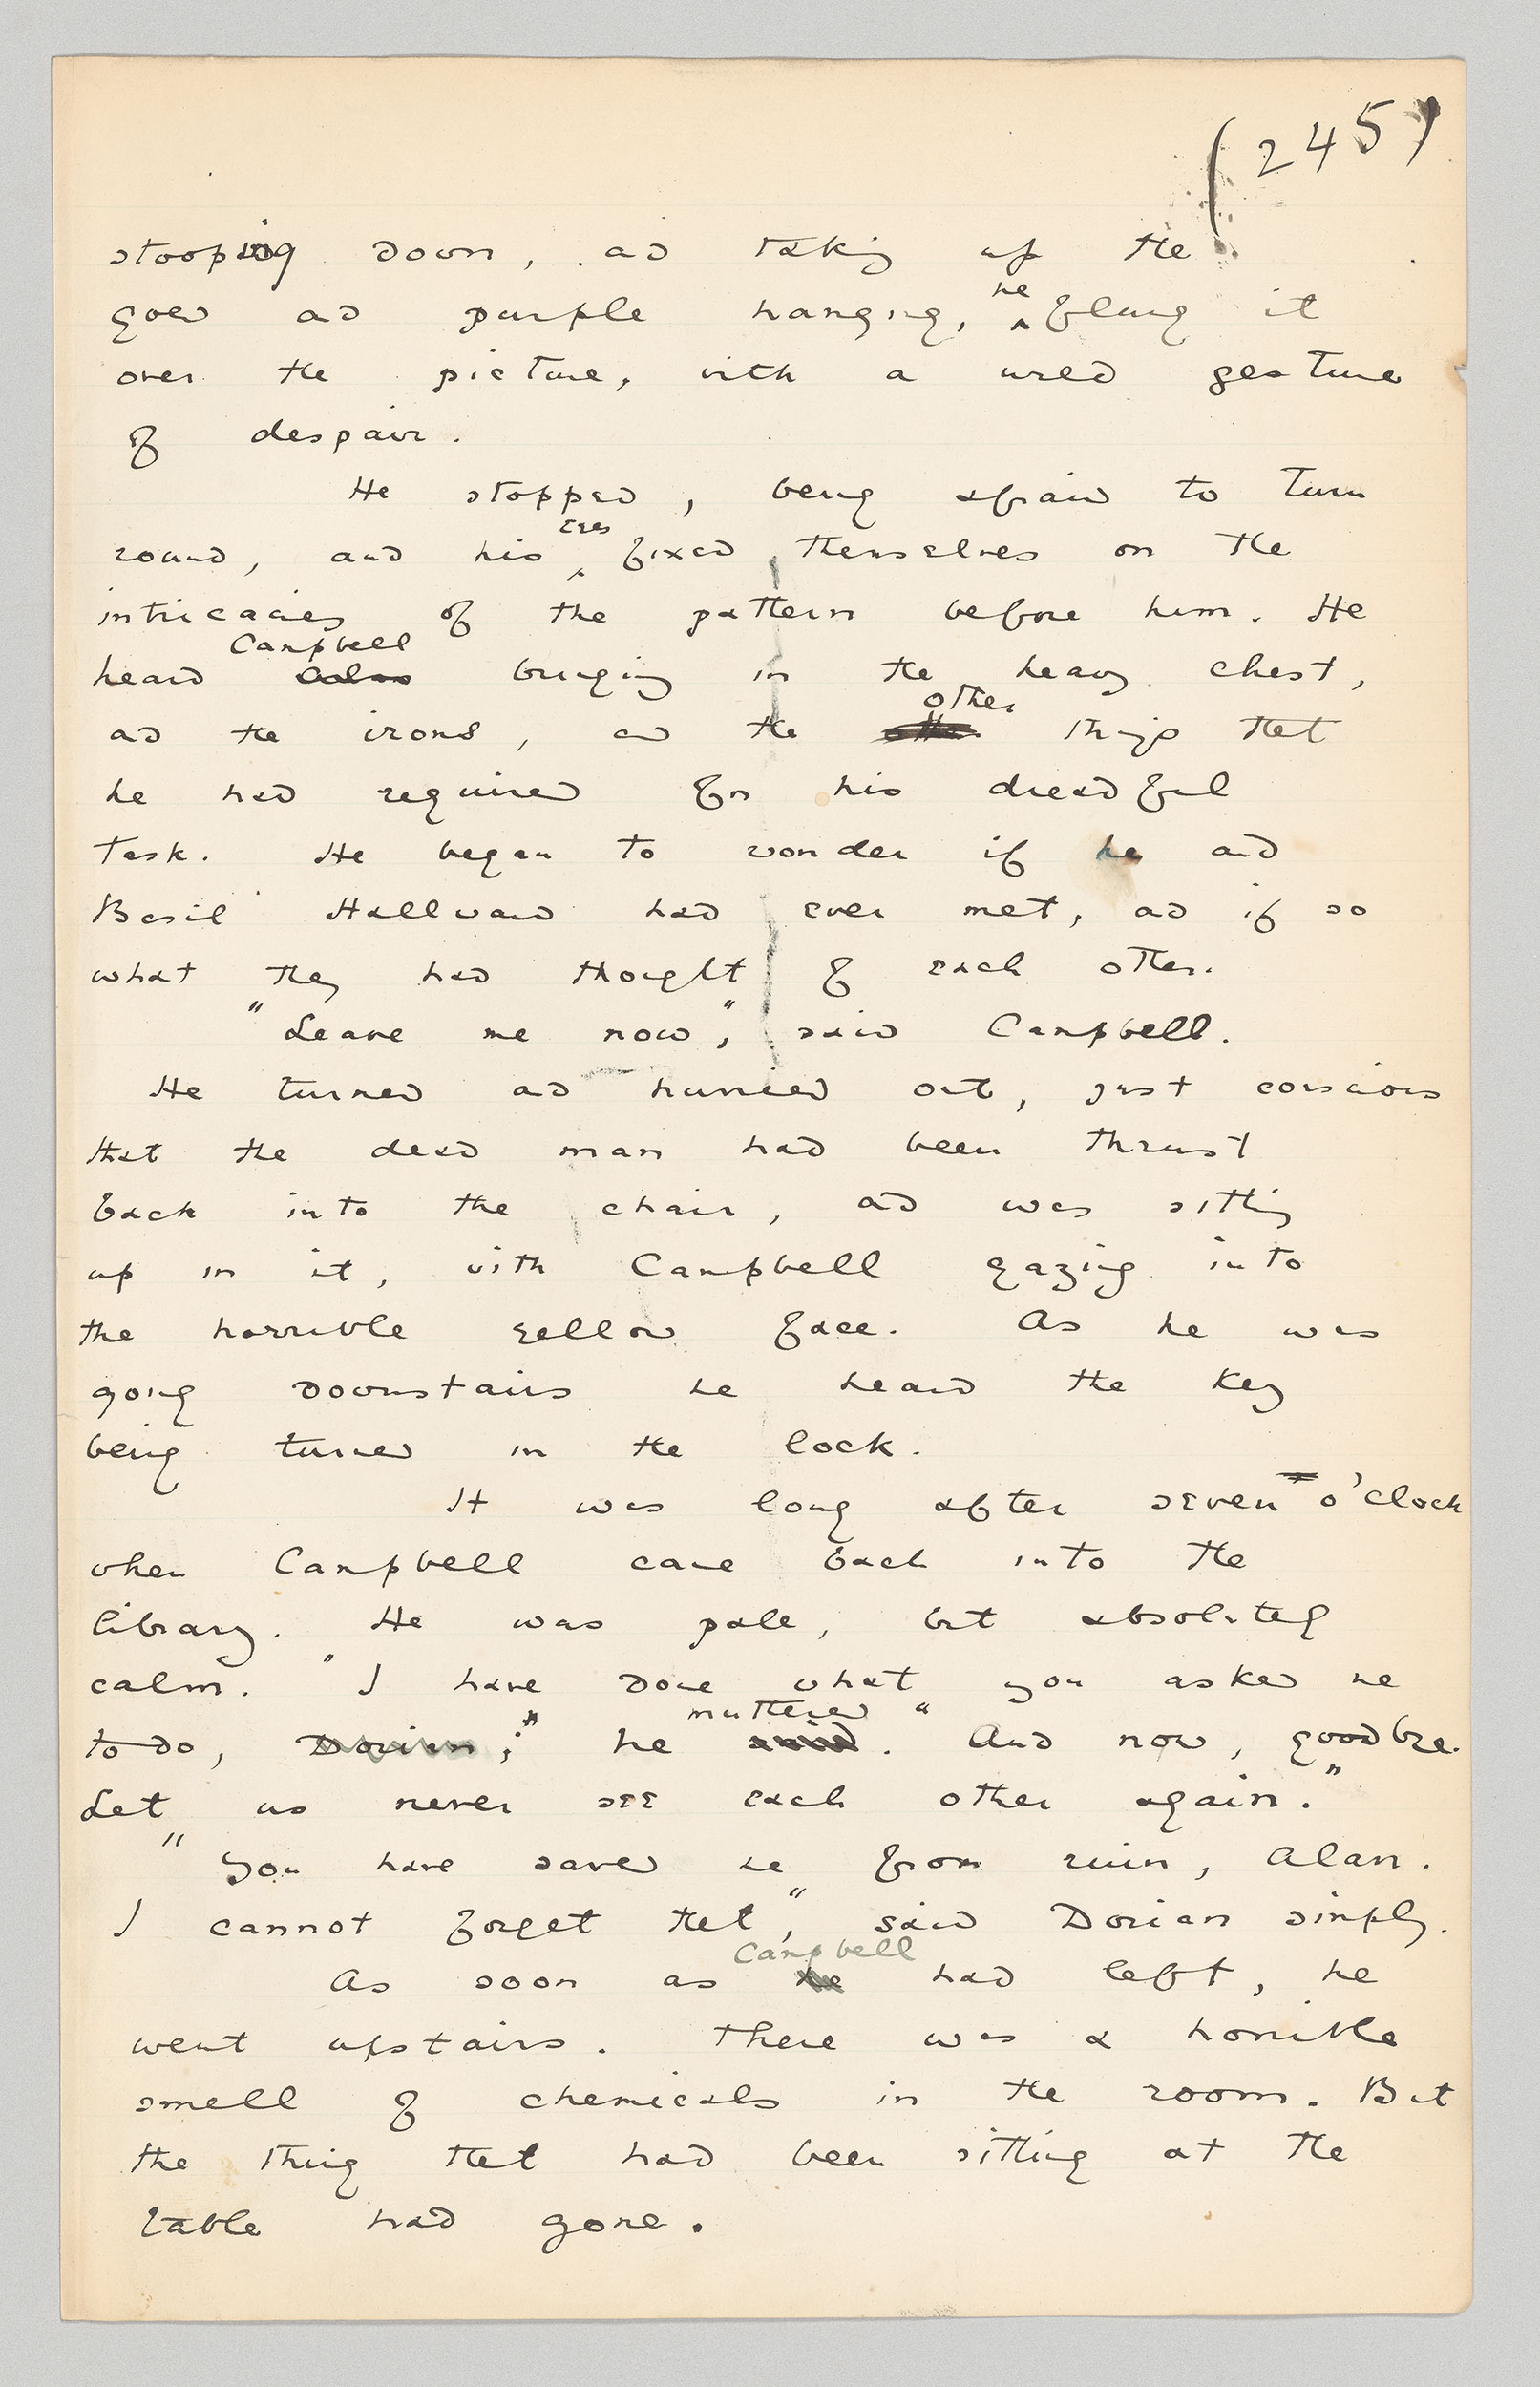 (245)
stooping down, and taking up the
gold and purple hanging, he flung it
over the picture, with a wild gesture
of despair.
He stopped, being afraid to turn
round, and his eyes fixed themselves on the
intricacies of the pattern before him. He
Campbell
heard Alan bringing in the heavy chest,
other
and the irons, and the things that
he had required for his dreadful
task. He began to wonder if he and
Basil Hallward had ever met, and if so
what they had thought of each other.
"Leave me now", said Campbell.
He turned and hurried out, just conscious
that the dead man had been thrust
back into the chair, and was sitting
up in it, with Campbell gazing into
the horrible yellow face. As he was
going downstairs he heard the key
being turned in the lock.
It was long after seven o'clock
when Campbell came back into the
library. He was pale, but absolutely
calm. "I have done what you asked me
muttered
to do, Dorian;" he said. "And now, goodbye.
Let us never see each other again."
"You have saved me from ruin, Alan.
I cannot forget that", said Dorian simply.
Campbell
As soon as he had left, he
went upstairs. There was a horrible
smell of chemicals in the room. But
the thing that had been sitting at the
table had gone.